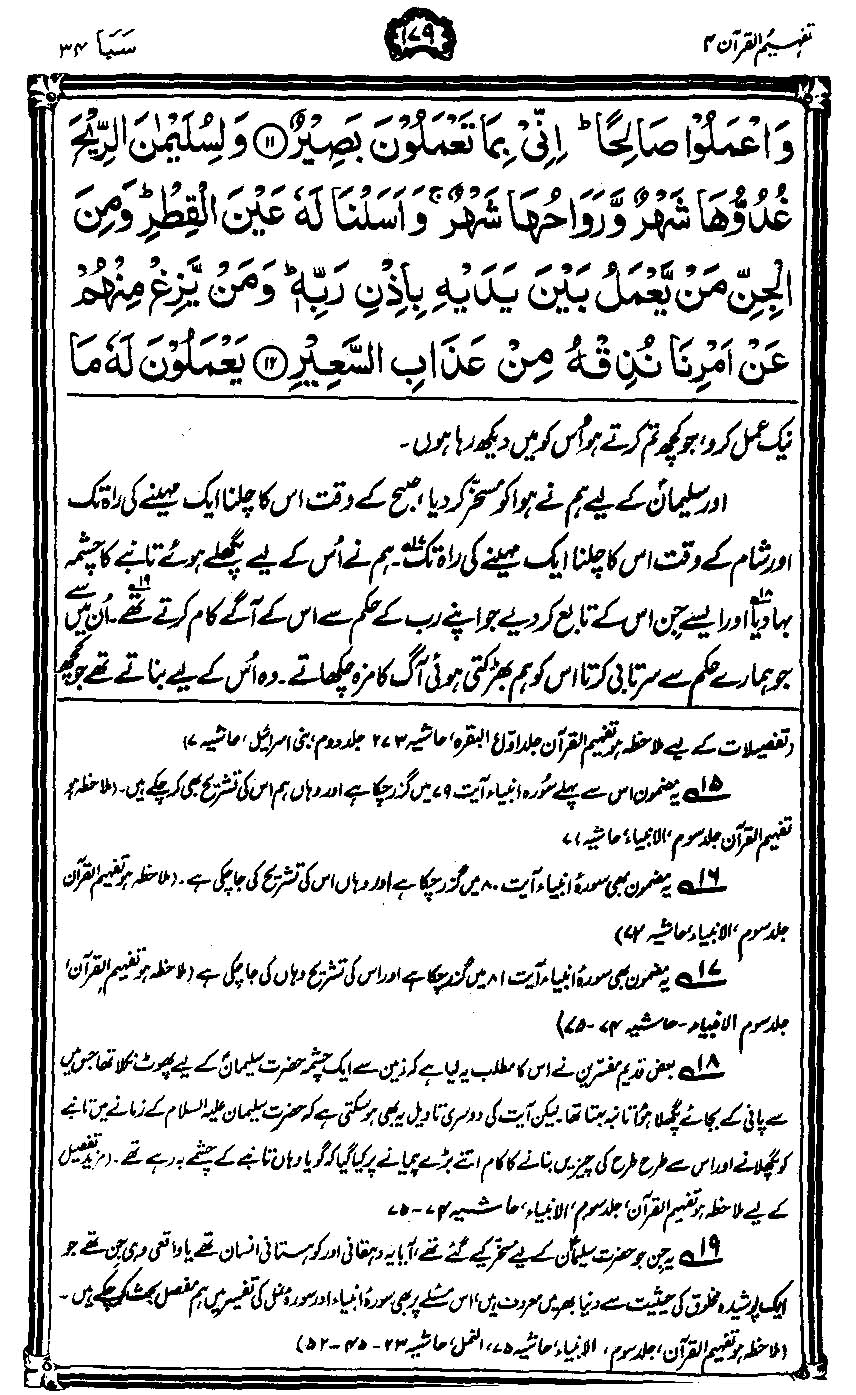 تفہیم القرآن ۴
۱۷۹
سَبَا ۳۴
وَاعْمَلُوْا صَالِحًا ؕ اِنِّیْ بِمَا تَعْمَلُوْنَ بَصِیْرٌ ﴿۱۱﴾ وَلِسُلَیْمٰنَ الرِّیْحَ
غُدُوُّهَا شَهْرٌ وَّرَوَاحُهَا شَهْرٌ ۚ وَاَسَلْنَا لَهٗ عَیْنَ الْقِطْرِ ؕ وَمِنَ
الْجِنِّ مَنْ یَّعْمَلُ بَیْنَ یَدَیْهِ بِاِذْنِ رَبِّهٖ ؕ وَمَنْ یَّزِغْ مِنْهُمْ
عَنْ اَمْرِنَا نُذِقْهُ مِنْ عَذَابِ السَّعِیْرِ ﴿۱۲﴾ یَعْمَلُوْنَ لَهٗ مَا
نیک عمل کرو، جو کچھ تم کرتے ہو اُس کو میں دیکھ رہا ہوں۔
اور سلیمانؑ کے لیے ہم نے ہوا کو مسخّر کر دیا، صبح کے وقت اس کا چلنا ایک مہینے کی راہ تک
اور شام کے وقت اس کا چلنا ایک مہینے کی راہ تک۱۷۔ ہم نے اُس کے لیے پگھلے ہوئے تانبے کا چشمہ
بہا دیا۱۸ اور ایسے جن اس کے تابع کر دیے جو اپنے رب کے حکم سے اس کے آگے کام کرتے تھے۱۹۔ اُن میں سے
جو ہمارے حکم سے سرتابی کرتا اس کو ہم بھڑکتی ہوئی آگ کا مزہ چکھاتے۔ وہ اُس کے لیے بناتے تھے جو کچھ
(تفصیلات کے لیے ملاحظہ ہو تفہیم القرآن جلد اوّل، البقرہ، حاشیہ ۲۷۳ جلد دوم، بنی اسرائیل، حاشیہ ۷)
۱۵ یہ مضمون اس سے پہلے سُورہ انبیاء آیت ۷۹ میں گزر چکا ہے اور وہاں ہم اس کی تشریح بھی کر چکے ہیں۔ (ملاحظہ ہو
تفہیم القرآن جلد سوم، الانبیاء، حاشیہ ۷۱
۱۶ یہ مضمون بھی سورۂ انبیاء آیت ۸۰ میں گزر چکا ہے اور وہاں اس کی تشریح کی جا چکی ہے۔ (ملاحظہ ہو تفہیم القرآن
جلد سوم، الانبیاء، حاشیہ ۷۲)
۱۷ یہ مضمون بھی سورۂ انبیاء آیت ۸۱ میں گزر چکا ہے اور اس کی تشریح وہاں کی جا چکی ہے (ملاحظہ ہو تفہیم القرآن،
جلد سوم الانبیاء۔ حاشیہ ۷۴-۷۵)
۱۸ بعض قدیم مفسّرین نے اس کا مطلب یہ لیا ہے کہ زمین سے ایک چشمہ حضرت سلیمانؑ کے لیے پھوٹ نکلا تھا جس میں
سے پانی کے بجائے پگھلا ہوا تانبہ بہتا تھا۔ لیکن آیت کی دوسری تاویل یہ بھی ہو سکتی ہے کہ حضرت سلیمان علیہ السلام کے زمانے میں تانبے
کو پگھلانے اور اس سے طرح طرح کی چیزیں بنانے کا کام اتنے بڑے پیمانے پر کیا گیا کہ گویا وہاں تانبے کے چشمے بہ رہے تھے۔ (مزید تفصیل
کے لیے ملاحظہ ہو تفہیم القرآن، جلد سوم، الانبیاء، حاشیہ ۷۴-۷۵
۱۹ یہ جن جو حضرت سلیمانؑ کے لیے مسخّر کیے گئے تھے، آیا یہ دہقانی اور کوہستانی انسان تھے یا واقعی وہی جن تھے جو
ایک پوشیدہ مخلوق کی حیثیت سے دنیا بھر میں معروف ہیں، اس مسئلے پر بھی سورۂ انبیاء اور سورۂ نمل کی تفسیر میں ہم مفصل بحث کر چکے ہیں۔
(ملاحظہ ہو تفہیم القرآن، جلد سوم، الانبیاء، حاشیہ ۷۵، النمل، حاشیہ ۲۳-۴۵-۵۲)